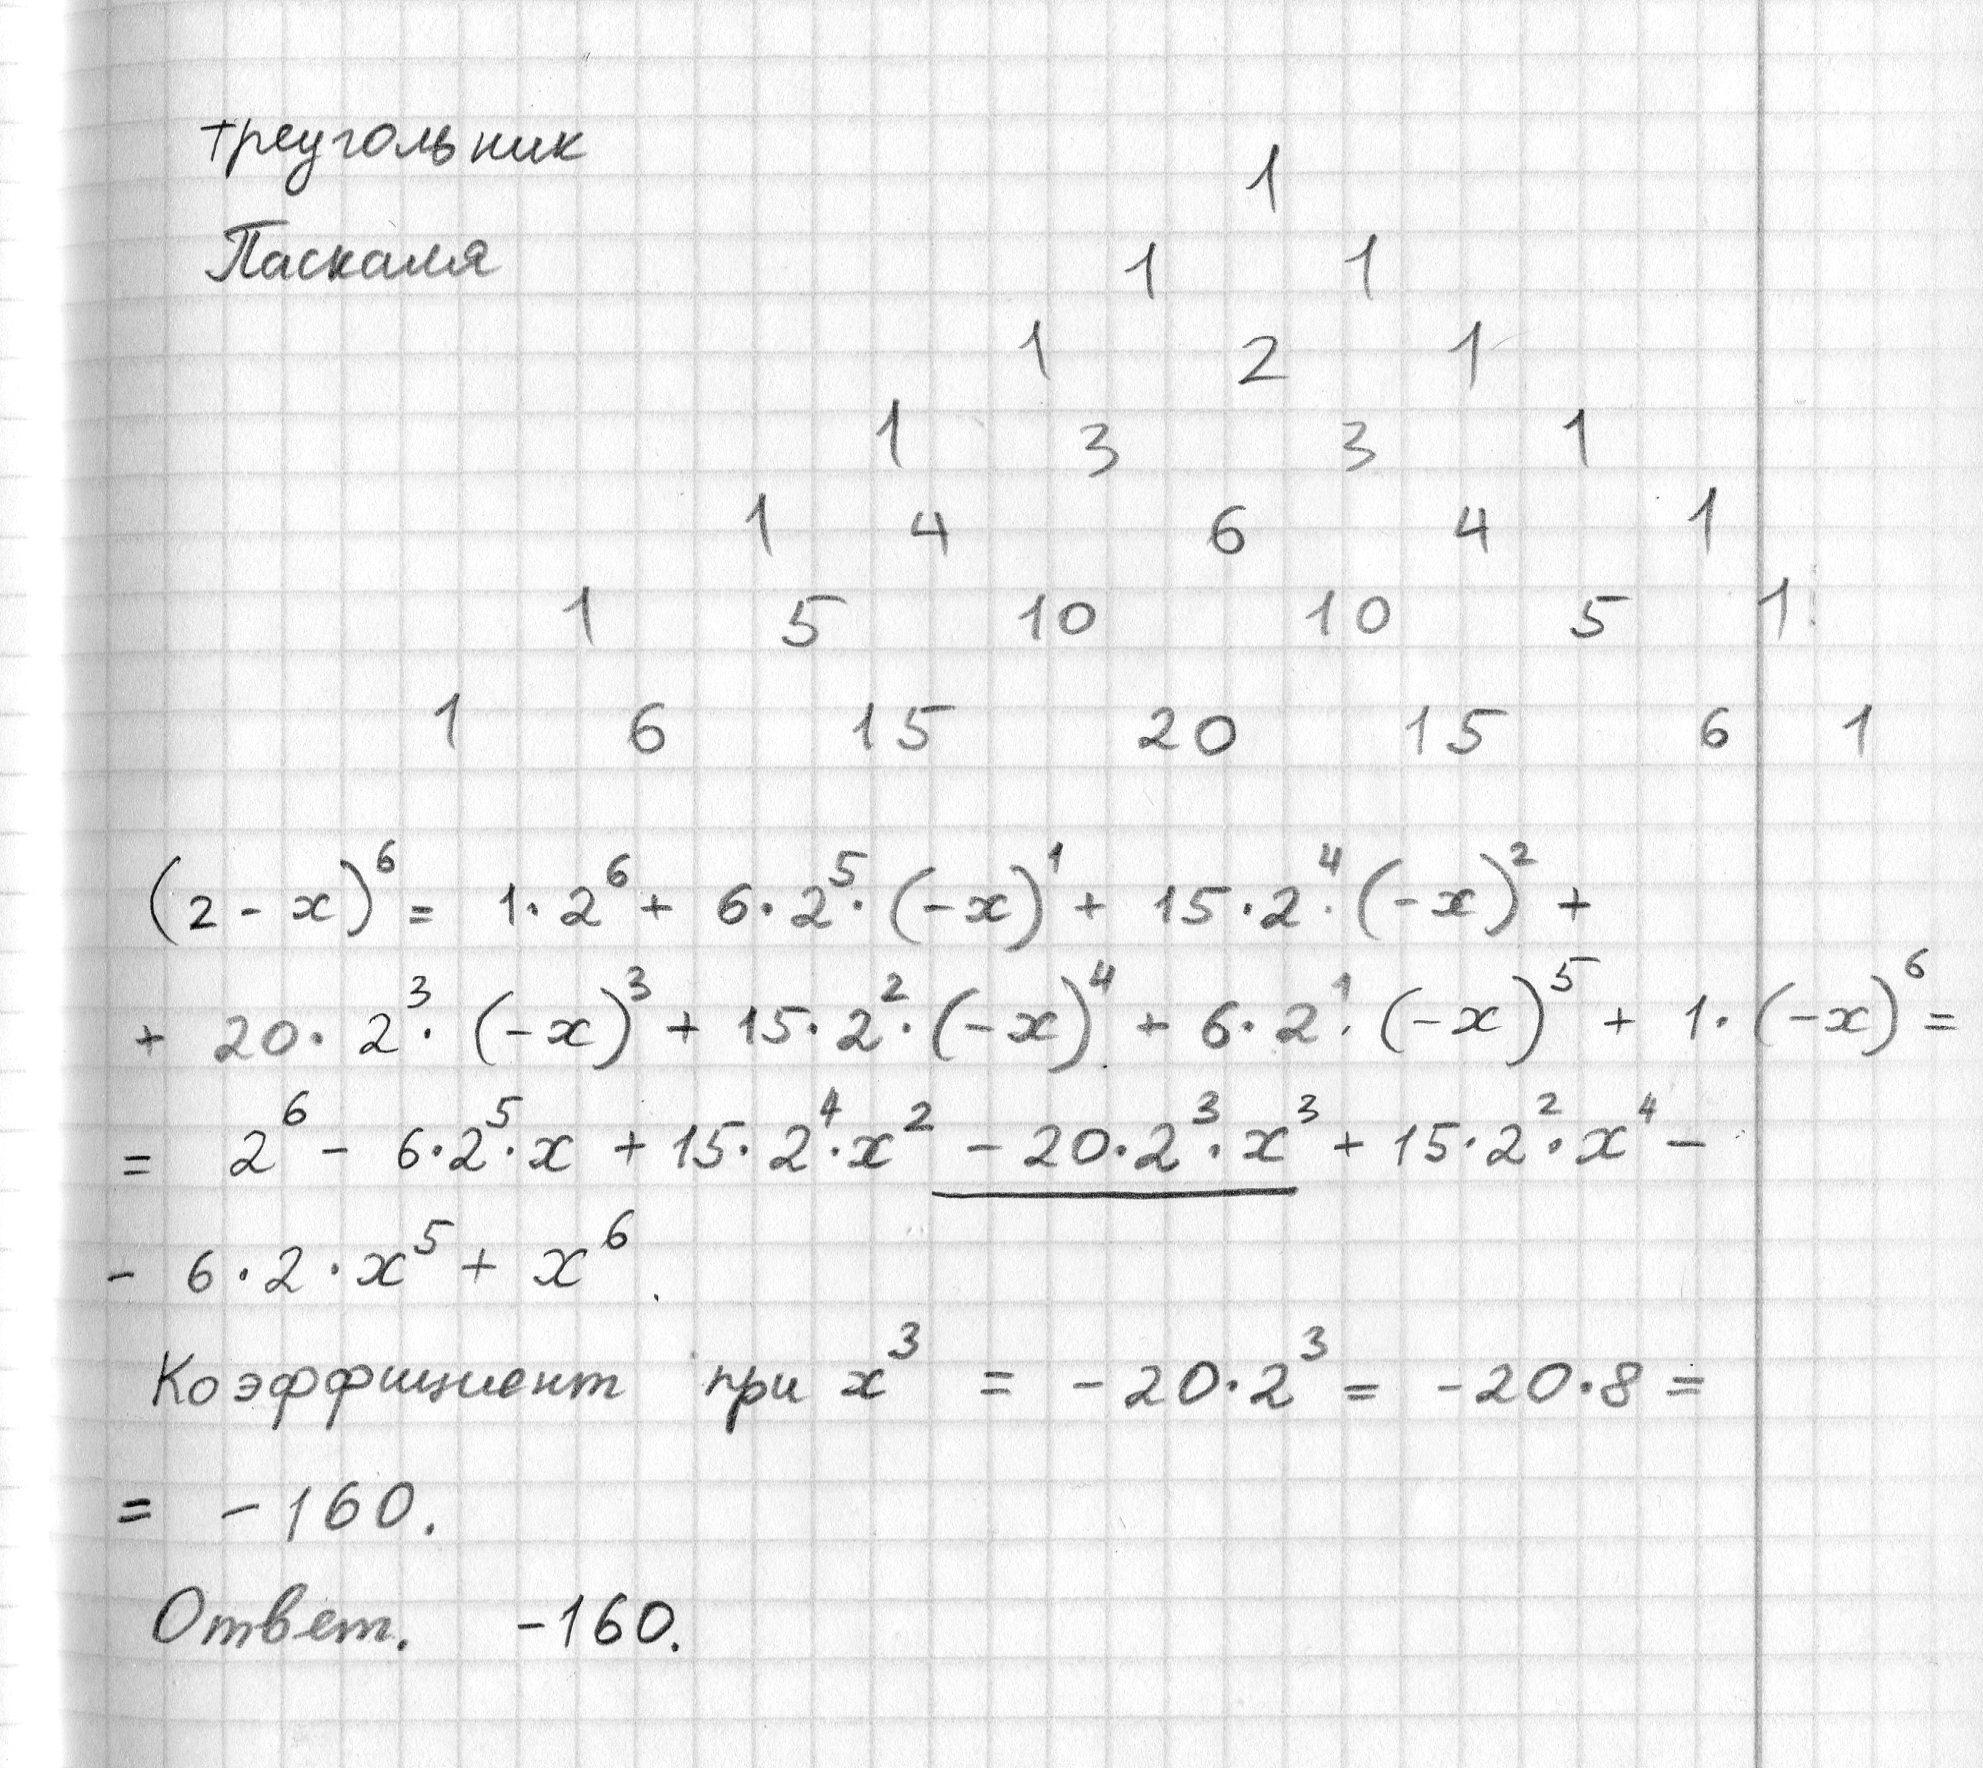 треугольник
1
Паскаля
1 1
1 2 1
1 3 3 1
1 4 6 4 1
1 5 10 10 5 1
1 6 15 20 15 6 1
(2-x)⁶ = 1·2⁶ + 6·2⁵·(-x)¹ + 15·2⁴·(-x)² +
+ 20·2³·(-x)³ + 15·2²·(-x)⁴ + 6·2¹·(-x)⁵ + 1·(-x)⁶ =
= 2⁶ - 6·2⁵·x + 15·2⁴·x² - 20·2³·x³ + 15·2²·x⁴ -
- 6·2·x⁵ + x⁶.
Коэффициент при x³ = -20·2³ = -20·8 =
= -160.
Ответ. -160.